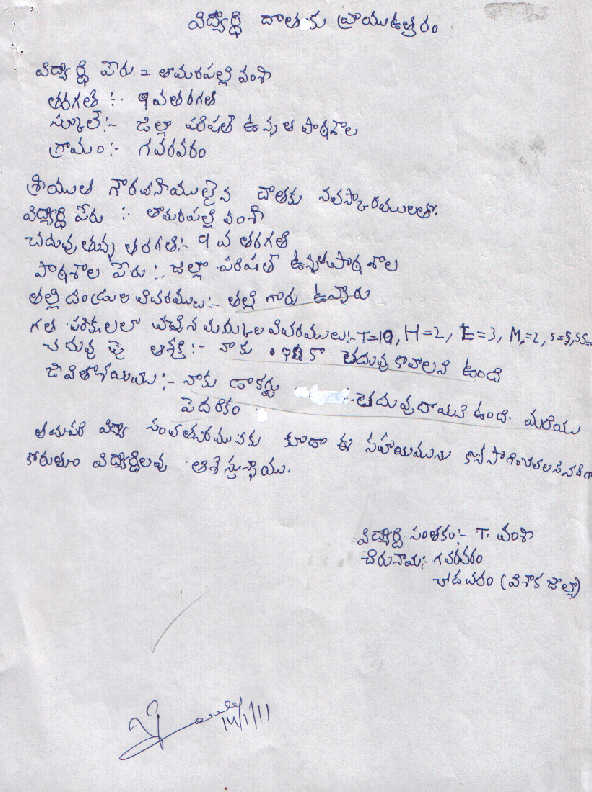 విద్యార్థి దాతకు ప్రాయుఉత్తరం
విద్యార్థి పేరు = తామరపల్లి వంశీ
తరగతి :- 9వ తరగతి
స్కూల్ :- జిల్లా పరిషత్ ఉన్నత పాఠశాల
గ్రామం :- గవరవరం
శ్రీయుత గౌరవనీయులైన దాతకు నమస్కారములతో.
విద్యార్థి పేరు :- తామరపల్లి వంశీ
చదువుతున్న తరగతి :- 9 వ తరగతి
పాఠశాల పేరు :- జిల్లా పరిషత్ ఉన్నత పాఠశాల
తల్లిదండ్రుల వివరములు :- తల్లి గారు ఉన్నారు
గత పరీక్షలలో వచ్చిన మార్కుల వివరములు :- T=10, H=2, E=3, M=2, S=5,
చదువు పై ఆసక్తి :- నాకు చదువుకావాలని ఉంది
జీవితాశయము :- నాకు డాక్టర్ చదువుదామని ఉంది. మరియు
పేదరికం
తదుపరి విద్యా సంవత్సరమునకు కూడా ఈ సహాయమును
కోరుతూ విద్యార్థిలను
విద్యార్థి సంతకం :- T. వంశీ
చిరునామా :- గవరవరం
చోడవరం (విశాక జిల్లా)
14/1/11